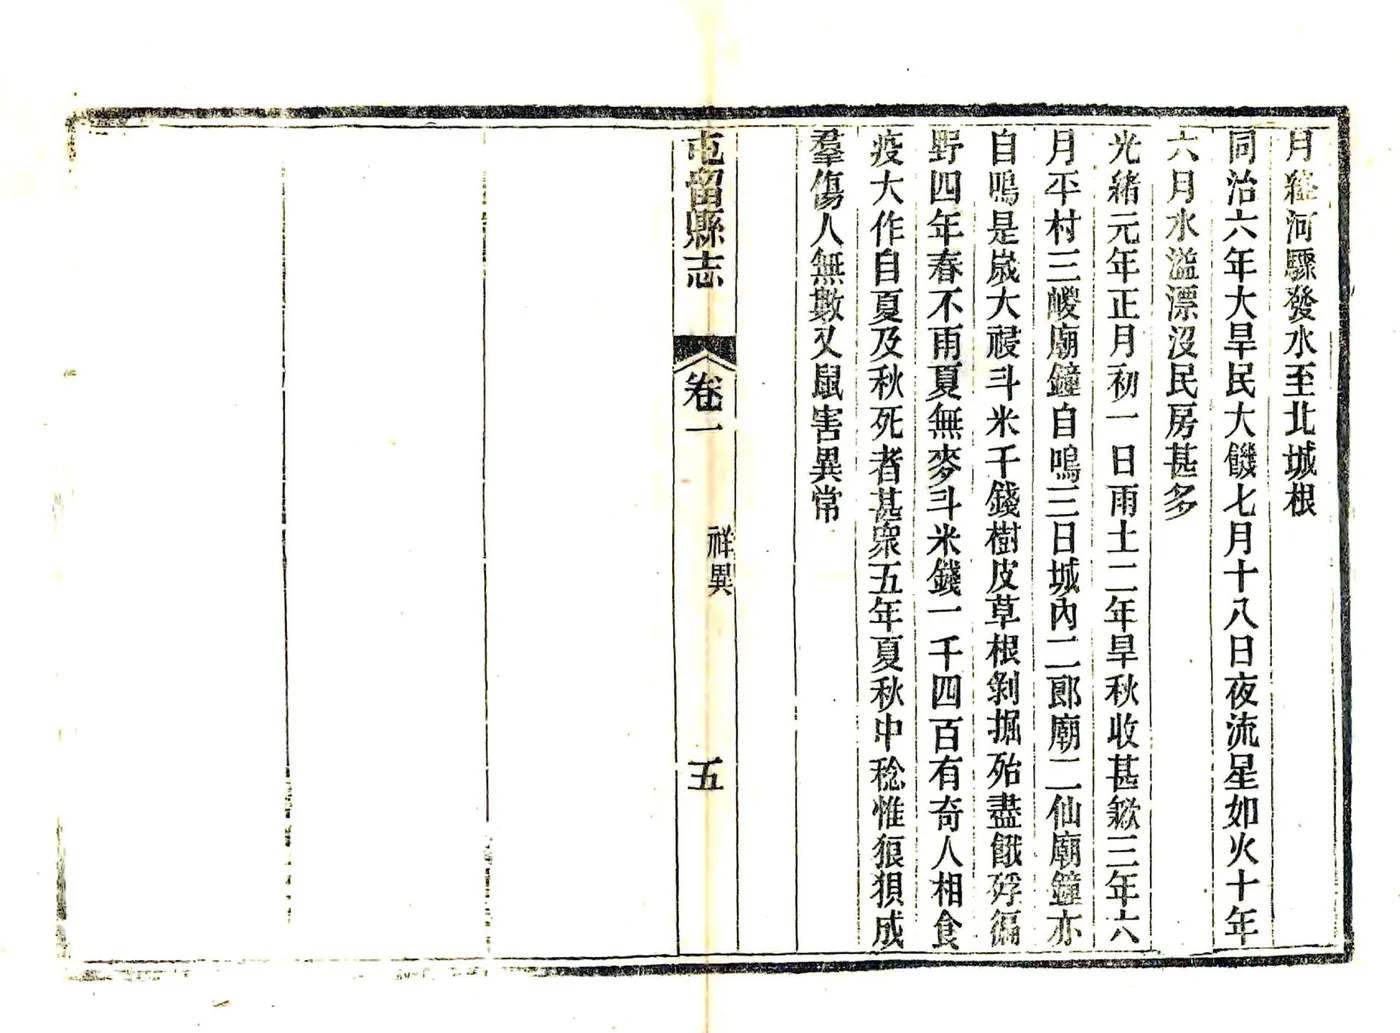 月絳河驟發水至北城根
同治六年大旱民大饑七月十八日夜流星如火十年
六月水溢漂沒民房甚多
光緒元年正月初一日雨土二年旱秋收甚歉三年六
月平村三嵕廟鐘自鳴三日城內二郎廟二仙廟鐘亦
自鳴是歲大祲斗米千錢樹皮草根剝掘殆盡餓殍徧
野四年春不雨夏無麥斗米錢一千四百有奇人相食
疫大作自夏及秋死者甚衆五年夏秋中稔惟狼狽成
羣傷人無數又鼠害異常
屯留縣志
卷一
祥異
五